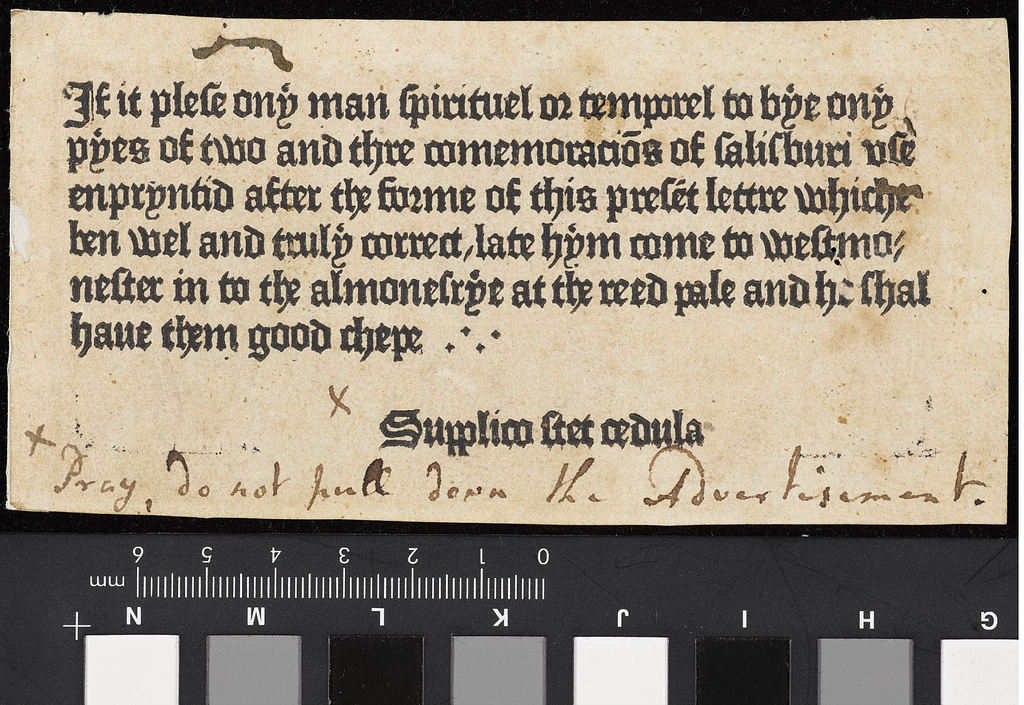 If it plese ony man spirituel or temporel to bye ony
pyes of two and thre comemoracōs of salisburi vse
enpryntid after the forme of this presēt lettre whiche
ben wel and truly correct, late hym come to westmo/
nester in to the almonesrye at the reed pale and he shal
haue them good chepe .·.·
Supplico stet cedula
x
x Pray, do not pull down the Advertisement.
6 5 4 3 2 1 0
mm
N M L K J I H G